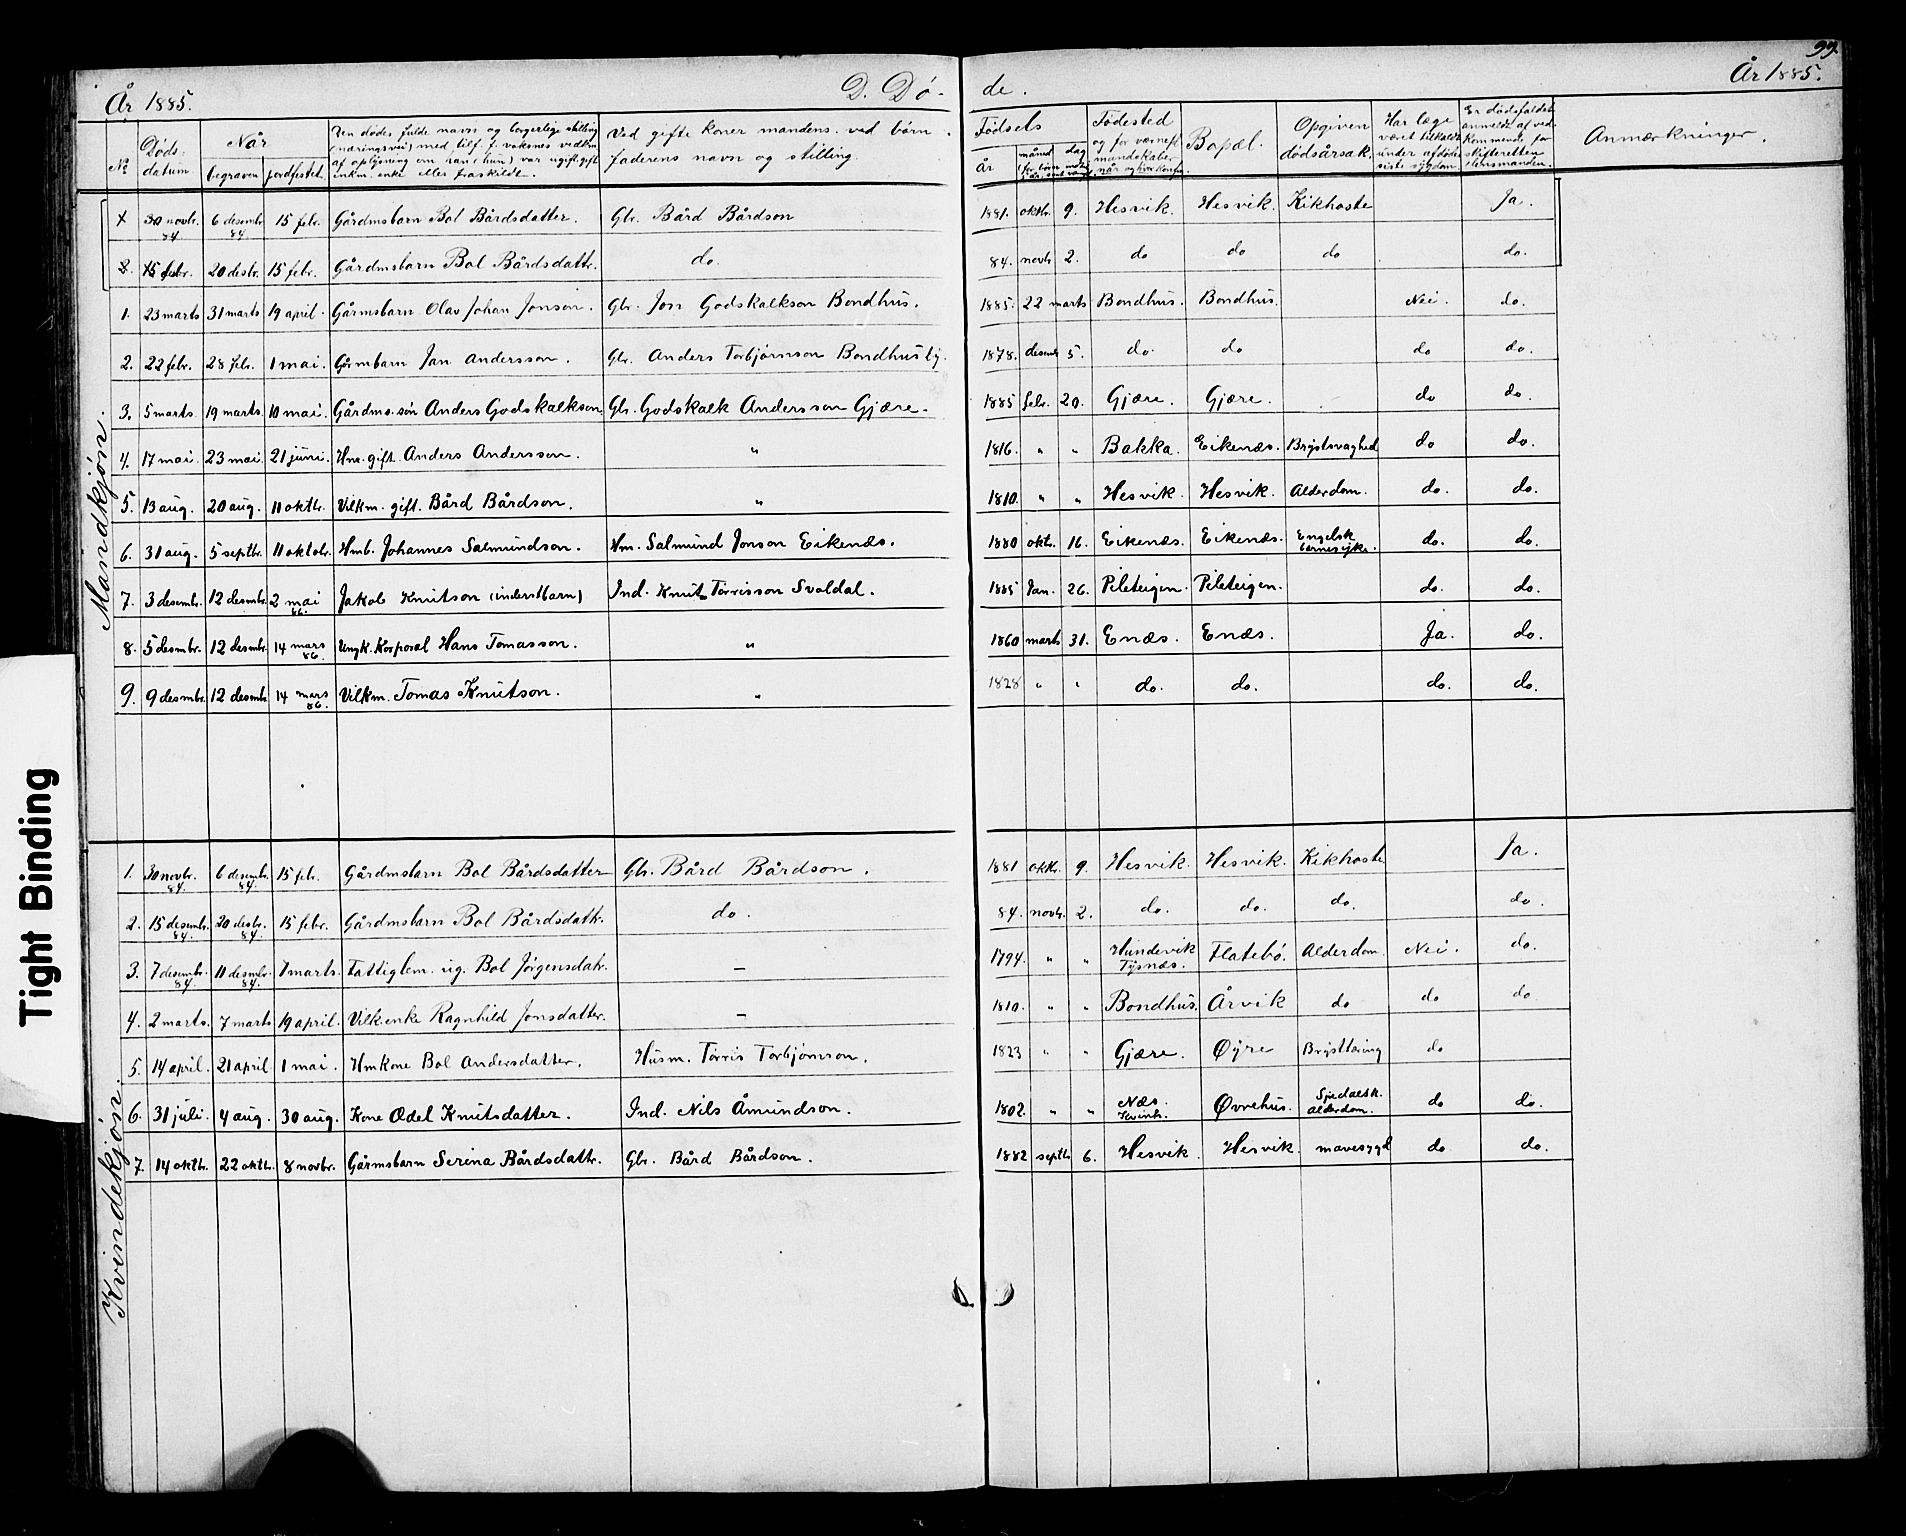 99.
År 1885. D. Dø- de. År 1885.
No Døds-datum Når begraven jordfestet Den dødes fulde navn og borgerlige stilling (næringsvei) med tilf. f. voksnes vedkm. af oplysning om han (hun) var ugift, gift enkm. enke eller fraskildt. Ved gifte koner mandens. ved børn faderens navn og stilling. Fødsels År måned dag Fødested og for værnepl. mandskaber når og hvor Bopæl. Opgiven dødsårsak. Har læge været tilkaldt under afdødes siste sygdom. Er dødsfaldet anmeldt af vedkommende for skifteretten lensmanden. Anmærkninger.
Mandkjøn.
1 30 novbr. 84 6 desembr 84 15 febr. Gårdmsbarn Bol Bårdsdatter. Gbr. Bård Bårdson 1881. oktbr. 9. Hesvik. Hesvik. Kikhoste Ja.
2. 15 febr. 20 desbr. 15 febr. Gårdmsbarn Bol Bårdsdattr. do. 84. novbr 2. do do do do.
1. 23 marts 31 marts 19 april. Gårmsbarn Olav Johan Jonson. Gbr. Jon Godskalkson Bondhus. 1885. 22 marts Bondhus. Bondhus. Nei. do.
2. 22 febr. 28 febr. 1 mai. Gårmbarn Jan Andersson. Gbr. Anders Torbjørnson Bondhus 1878. desembr 5. do. do do do.
3. 5 marts 19 marts. 10 mai. Gårdms. søn Anders Godskalkson Gbr. Godskalk Andersson Gjære. 1885 febr. 20. Gjære. Gjære. do do.
4. 17 mai 23 mai. 21 juni. Hm. gift Anders Andersson. " 1816. " " Bakka. Eikenæs. Brystsvaghed do do.
5. 13 aug. 20 aug. 11 oktbr. Vilkm. gift. Bård Bårdson. " 1810. " " Hesvik. Hesvik. Alderdom. do. do.
6. 31 aug. 5 septbr. 11 oktobr. Hmb. Johannes Salmundson. Hm. Salmund Jonson Eikenæs. 1880 oktbr. 16. Eikenæs. Eikenæs. Engelsk Barnesyke. do. do.
7. 3 desembr. 12 desmbr. 2 mai 86. Jakob Knutson (inderstbarn) Ind. Knut Tørrisson Svaldal. 1885 Jan. 26. Pileteigen. Pileteigen. do. do.
8. 5 desmbr. 12 desmbr. 14 mars 86. Ungk. Korporal Hans Tomasson. " 1860 marts 31. Enæs. Enæs. Ja. do.
9. 9 desmbr. 12 desmbr. 14 mars 86. Vilkm. Tomas Knutson. " 1828 " " do. do. do. do.
Kvindekjøn.
1. 30 novbr. 84. 6 desembr. 84. 15 febr. Gårdmsbarn Bol Bårdsdatter Gbr. Bård Bårdson. 1881 oktbr. 9. Hesvik. Hesvik. Kikhoste Ja.
2. 15 desembr. 84. 20 desbr. 84. 15 febr. Gårdmsbarn Bol Bårdsdattr. do. 84. novbr. 2. do. do. do. do.
3. 7 desembr. 84. 11 desmbr. 84. 7 marts. Fattiglem. ug. Bol Jørgensdatr. — 1794. " " Hundevik Tysnæs. Flatebø. Alderdom. Nei. do.
4. 2 marts. 7 marts 19 april. Vilk. enke Ragnhild Jonsdatter. — 1810. " " Bondhus. Årvik do do do
5. 14 april. 21 april 1 mai. Hmkone Bol Andersdatter. Husm. Tørris Torbjørnson. 1823 " " Gjære. Øyre Brysttæring do
6. 31 juli. 4 aug. 30 aug. Kone Ædel Knutsdatter. Ind. Nils Åmundson. 1802. " " Næs. Kvinh. Øvrehus. Alderdom. do do.
7. 14 oktbr. 22 oktbr. 8 novbr. Gårmsbarn Serina Bårdsdattr. Gbr. Bård Bårdson. 1882 septbr 6. Hesvik. Hesvik mavesygd do do.
Tight Binding